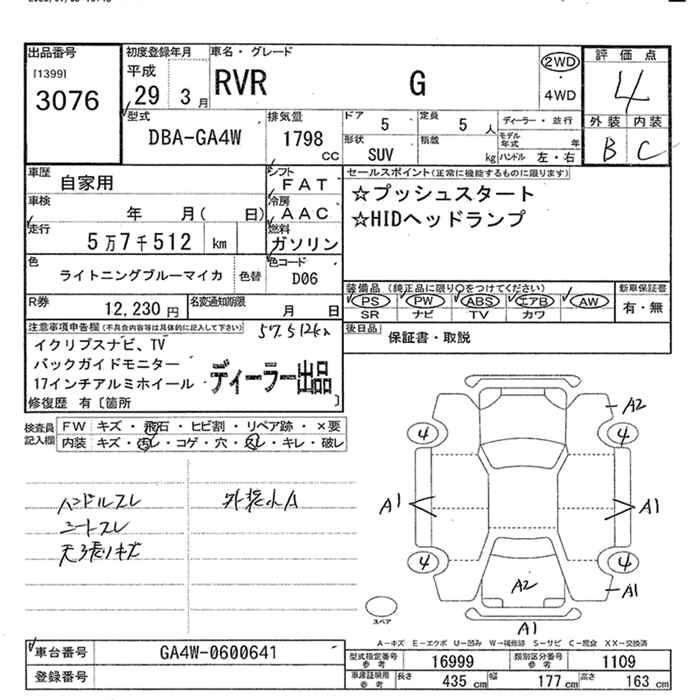 出品番号
[1399]
3076
初度登録年月
平成
29 3月
車名・グレード
RVR G
2WD
・
4WD
評価点
4
外装 内装
B C
型式
DBA-GA4W
排気量
1798
CC
ドア 5
定員 5 人
ディーラー・並行
形状
SUV
積載
kg
モデル年式 年
ハンドル 左・右
車歴
自家用
シフト
FAT
セールスポイント(正常に機能するものに限ります)
☆プッシュスタート
☆HIDヘッドランプ
車検
年 月( 日)
冷房
AAC
走行
5万7千512 km
燃料
ガソリン
色
ライトニングブルーマイカ
色替
色コード
D06
装備品(純正品に限り○をつけてください)
PS・PW・ABS・エアB・AW
SR ナビ TV カワ
新車保証書
有・無
R券
12,230 円
名変通知期限
月 日
後日品
保証書・取説
注意事項申告欄(不具合内容等は具体的に記入して下さい)
57512km
イクリプスナビ、TV
バックガイドモニター
17インチアルミホイール
ディーラー出品
修復歴 有[箇所 ]
検査員記入欄
FW キズ・飛石・ヒビ割・リペア跡・×要
内装 キズ・汚レ・コゲ・穴・スレ・キレ・破レ
ハンドルスレ
シートスレ
天張りキズ
外装小A
A2
4 4
A1 A1
4 4
A2 A1
A1
スペア
A-キズ E-エクボ U-凹み W-補修跡 S-サビ C-腐食 XX-交換済
車台番号
GA4W-0600641
登録番号
型式指定番号
参考
16999
類別区分番号
参考
1109
車庫証明用
参考
長さ 435 cm
幅 177 cm
高さ 163 cm